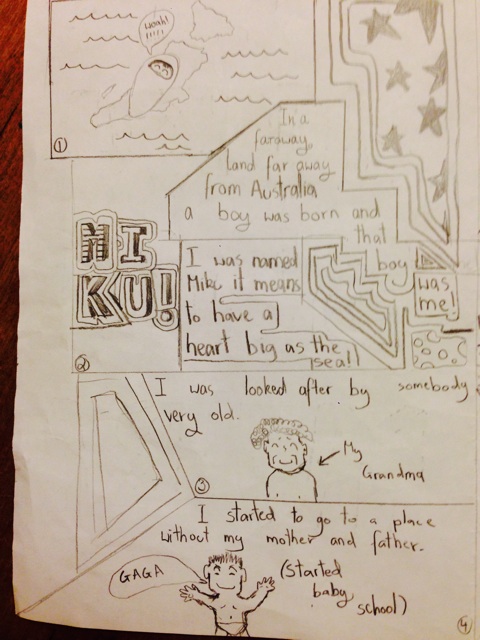 Woah!
!!!!
1
In a
faraway,
land far away
from Australia
a boy was born and
that
boy
was
me!
MI
KU!
I was named
Miku it means
to have a
heart big as the
sea!!
2
I was looked after by somebody
very old.
My
Grandma
3
I started to go to a place
without my mother and father.
GAGA
(Started
baby
school)
4